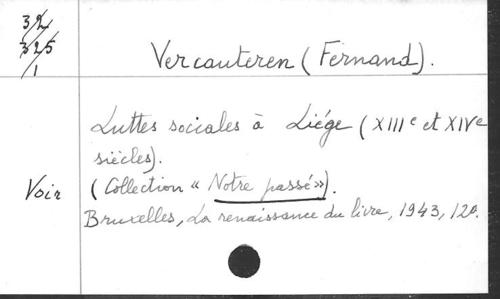 32/
325/
1
Vercauteren (Fernand).
Luttes sociales à Liége (XIIIe et XIVe
siècles).
Voir
(Collection « Notre passé »).
Bruxelles, La renaissance du livre, 1943, 12o.